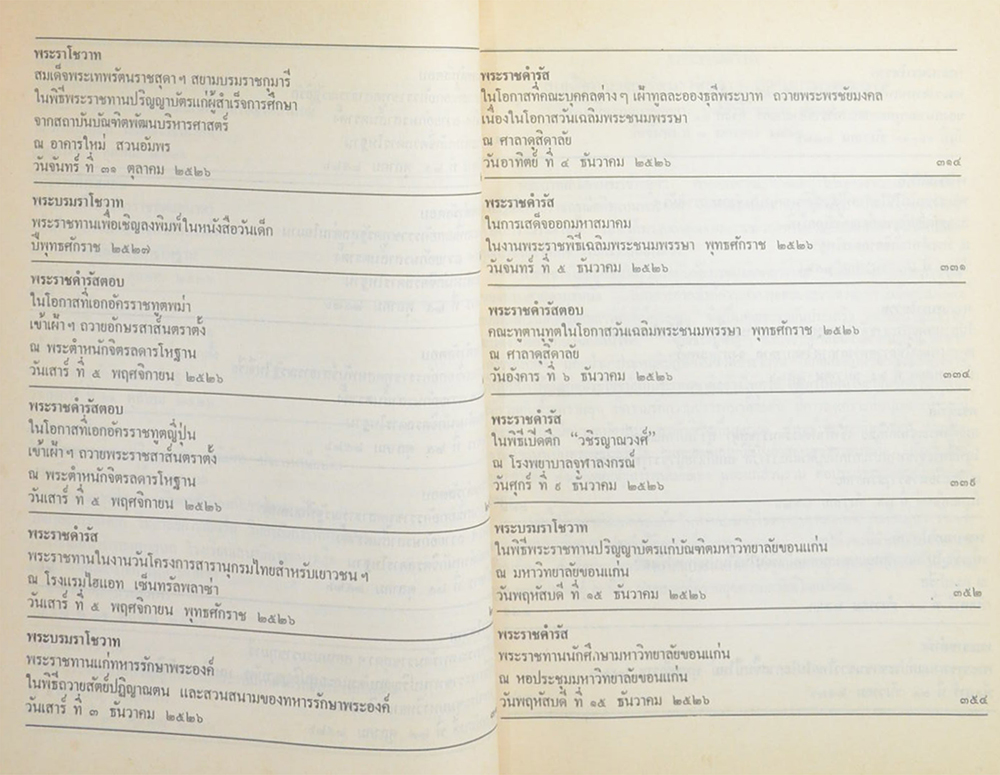 พระราโชวาท
สมเด็จพระเทพรัตนราชสุดา ฯ สยามบรมราชกุมารี
ในพิธีพระราชทานปริญญาบัตรแก่ผู้สำเร็จการศึกษา
จากสถาบันบัณฑิตพัฒนบริหารศาสตร์
ณ อาคารใหม่ สวนอัมพร
วันจันทร์ ที่ ๓๑ ตุลาคม ๒๕๒๖
พระบรมราโชวาท
พระราชทานเพื่อเชิญลงพิมพ์ในหนังสือวันเด็ก
ปีพุทธศักราช ๒๕๒๗
พระราชดำรัสตอบ
ในโอกาสที่เอกอัครราชทูตพม่า
เข้าเฝ้า ฯ ถวายอักษรสาส์นตราตั้ง
ณ พระตำหนักจิตรลดารโหฐาน
วันเสาร์ ที่ ๕ พฤศจิกายน ๒๕๒๖
พระราชดำรัสตอบ
ในโอกาสที่เอกอัครราชทูตญี่ปุ่น
เข้าเฝ้า ฯ ถวายพระราชสาส์นตราตั้ง
ณ พระตำหนักจิตรลดารโหฐาน
วันเสาร์ ที่ ๕ พฤศจิกายน ๒๕๒๖
พระราชดำรัส
พระราชทานในงานวันโครงการสารานุกรมไทยสำหรับเยาวชน ฯ
ณ โรงแรมไฮแอท เซ็นทรัลพลาซ่า
วันเสาร์ ที่ ๕ พฤศจิกายน พุทธศักราช ๒๕๒๖
พระบรมราโชวาท
พระราชทานแก่ทหารรักษาพระองค์
ในพิธีถวายสัตย์ปฏิญาณตน และสวนสนามของทหารรักษาพระองค์
วันเสาร์ ที่ ๓ ธันวาคม ๒๕๒๖
พระราชดำรัส
ในโอกาสที่คณะบุคคลต่าง ๆ เฝ้าทูลละอองธุลีพระบาท ถวายพระพรชัยมงคล
เนื่องในโอกาสวันเฉลิมพระชนมพรรษา
ณ ศาลาดุสิดาลัย
วันอาทิตย์ ที่ ๔ ธันวาคม ๒๕๒๖ ๓๑๔
พระราชดำรัส
ในการเสด็จออกมหาสมาคม
ในงานพระราชพิธีเฉลิมพระชนมพรรษา พุทธศักราช ๒๕๒๖
วันจันทร์ ที่ ๕ ธันวาคม ๒๕๒๖ ๓๓๑
พระราชดำรัสตอบ
คณะทูตานุทูตในโอกาสวันเฉลิมพระชนมพรรษา พุทธศักราช ๒๕๒๖
ณ ศาลาดุสิดาลัย
วันอังคาร ที่ ๖ ธันวาคม ๒๕๒๖ ๓๓๔
พระราชดำรัส
ในพิธีเปิดตึก “วชิรญาณวงศ์”
ณ โรงพยาบาลจุฬาลงกรณ์
วันศุกร์ ที่ ๙ ธันวาคม ๒๕๒๖ ๓๓๙
พระบรมราโชวาท
ในพิธีพระราชทานปริญญาบัตรแก่บัณฑิตมหาวิทยาลัยขอนแก่น
ณ มหาวิทยาลัยขอนแก่น
วันพฤหัสบดี ที่ ๑๕ ธันวาคม ๒๕๒๖ ๓๕๒
พระราชดำรัส
พระราชทานนักศึกษามหาวิทยาลัยขอนแก่น
ณ หอประชุมมหาวิทยาลัยขอนแก่น
วันพฤหัสบดี ที่ ๑๕ ธันวาคม ๒๕๒๖ ๓๕๔